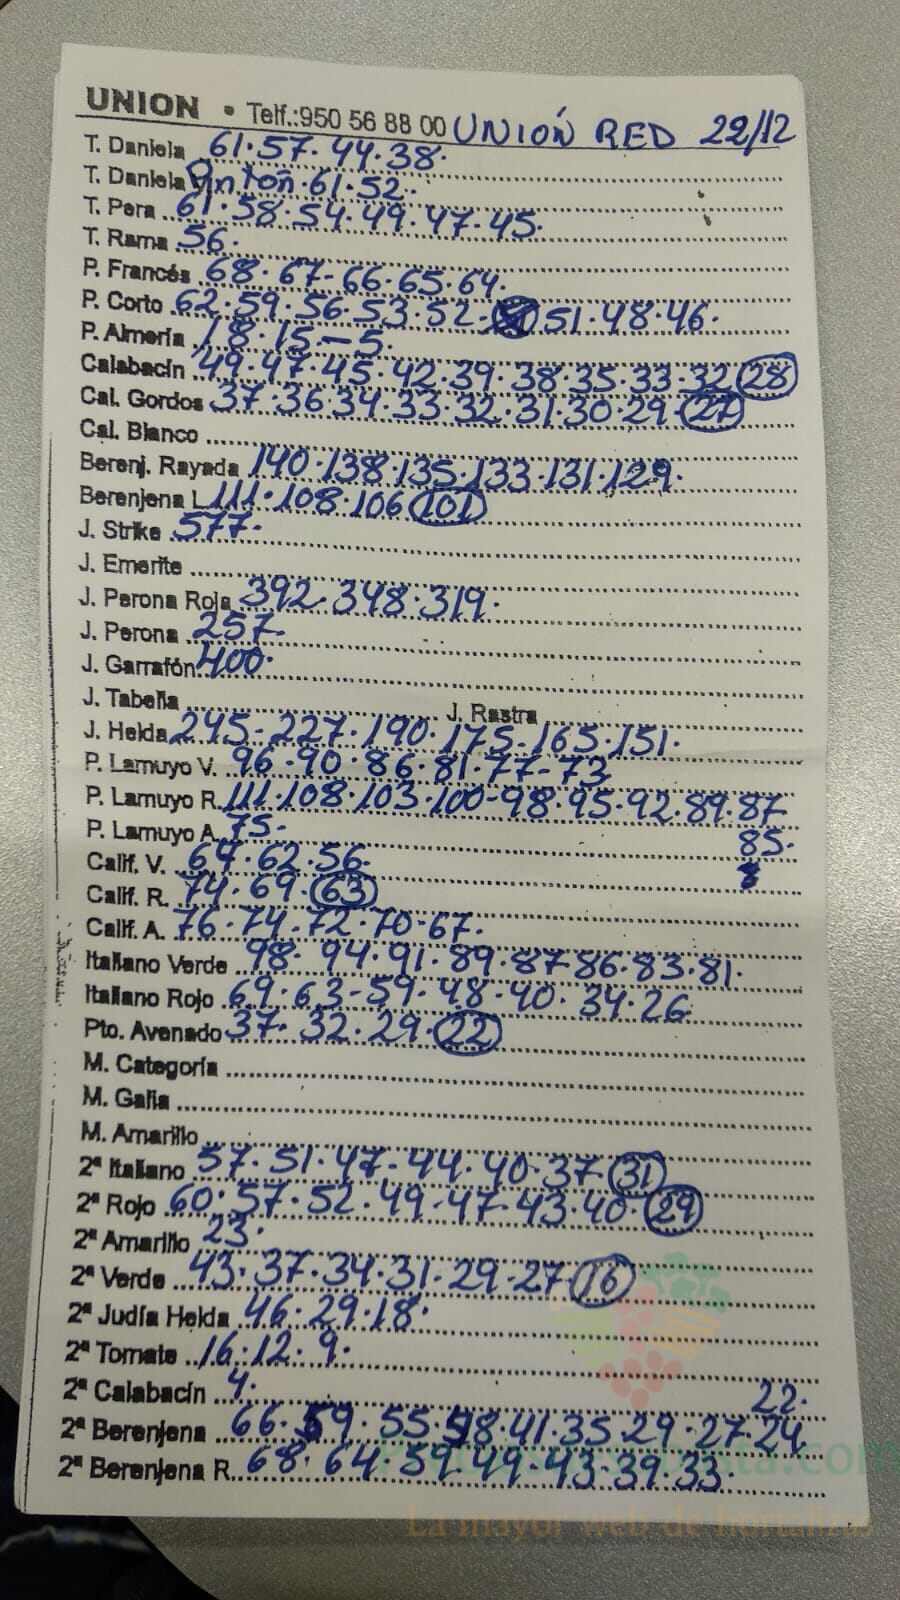 UNION • Telf.:950 56 88 00 UNIÓN RED 22/12
T. Daniela 61.57.44.38.
T. Daniela Pintón.61.52.
T. Pera 61.58.54.49.47.45.
T. Rama 56.
P. Francés 68.67-66.65.64.
P. Corto 62.59.56.53.52. 51.48.46.
P. Almería 18.15-5.
Calabacín 49.47.45.42.39.38.35.33.32 28
Cal. Gordos 37.36.34.33.32.31.30.29.27
Cal. Blanco
Berenj. Rayada 140.138.135.133.131.129.
Berenjena L 111.108.106 101
J. Strike 577.
J. Emerite
J. Perona Roja 392.348.319.
J. Perona 257.
J. Garrafón 400.
J. Tabella J. Rastra
J. Helda 245-227.190.175-165.151.
P. Lamuyo V. 96.90.86.81.77-73
P. Lamuyo R. 111.108.103.100-98.95.92.89.87
P. Lamuyo A. 75. 85.
Calif. V. 64.62.56.
Calif. R. 74.69.63
Calif. A. 76.74.72.70-67.
Italiano Verde 98.94.91.89.87 86.83.81.
Italiano Rojo 69.63-59.48-40.34.26.
Pto. Avenado 37.32.29.22
M. Categoría
M. Galia
M. Amarillo
2ª Italiano 57.51.47-44.40.37.31
2ª Rojo 60.57.52.49-47.43.40.29
2ª Amarillo 23.
2ª Verde 43.37.34.31.29-27.16
2ª Judía Helda 46.29.18.
2ª Tomate 16.12.9.
2ª Calabacín 4. 22.
2ª Berenjena 66.59.55 .41.35.29.27.24
2ª Berenjena R. 68.64.59.49.43.39.33.
La mayor web de hortalizas